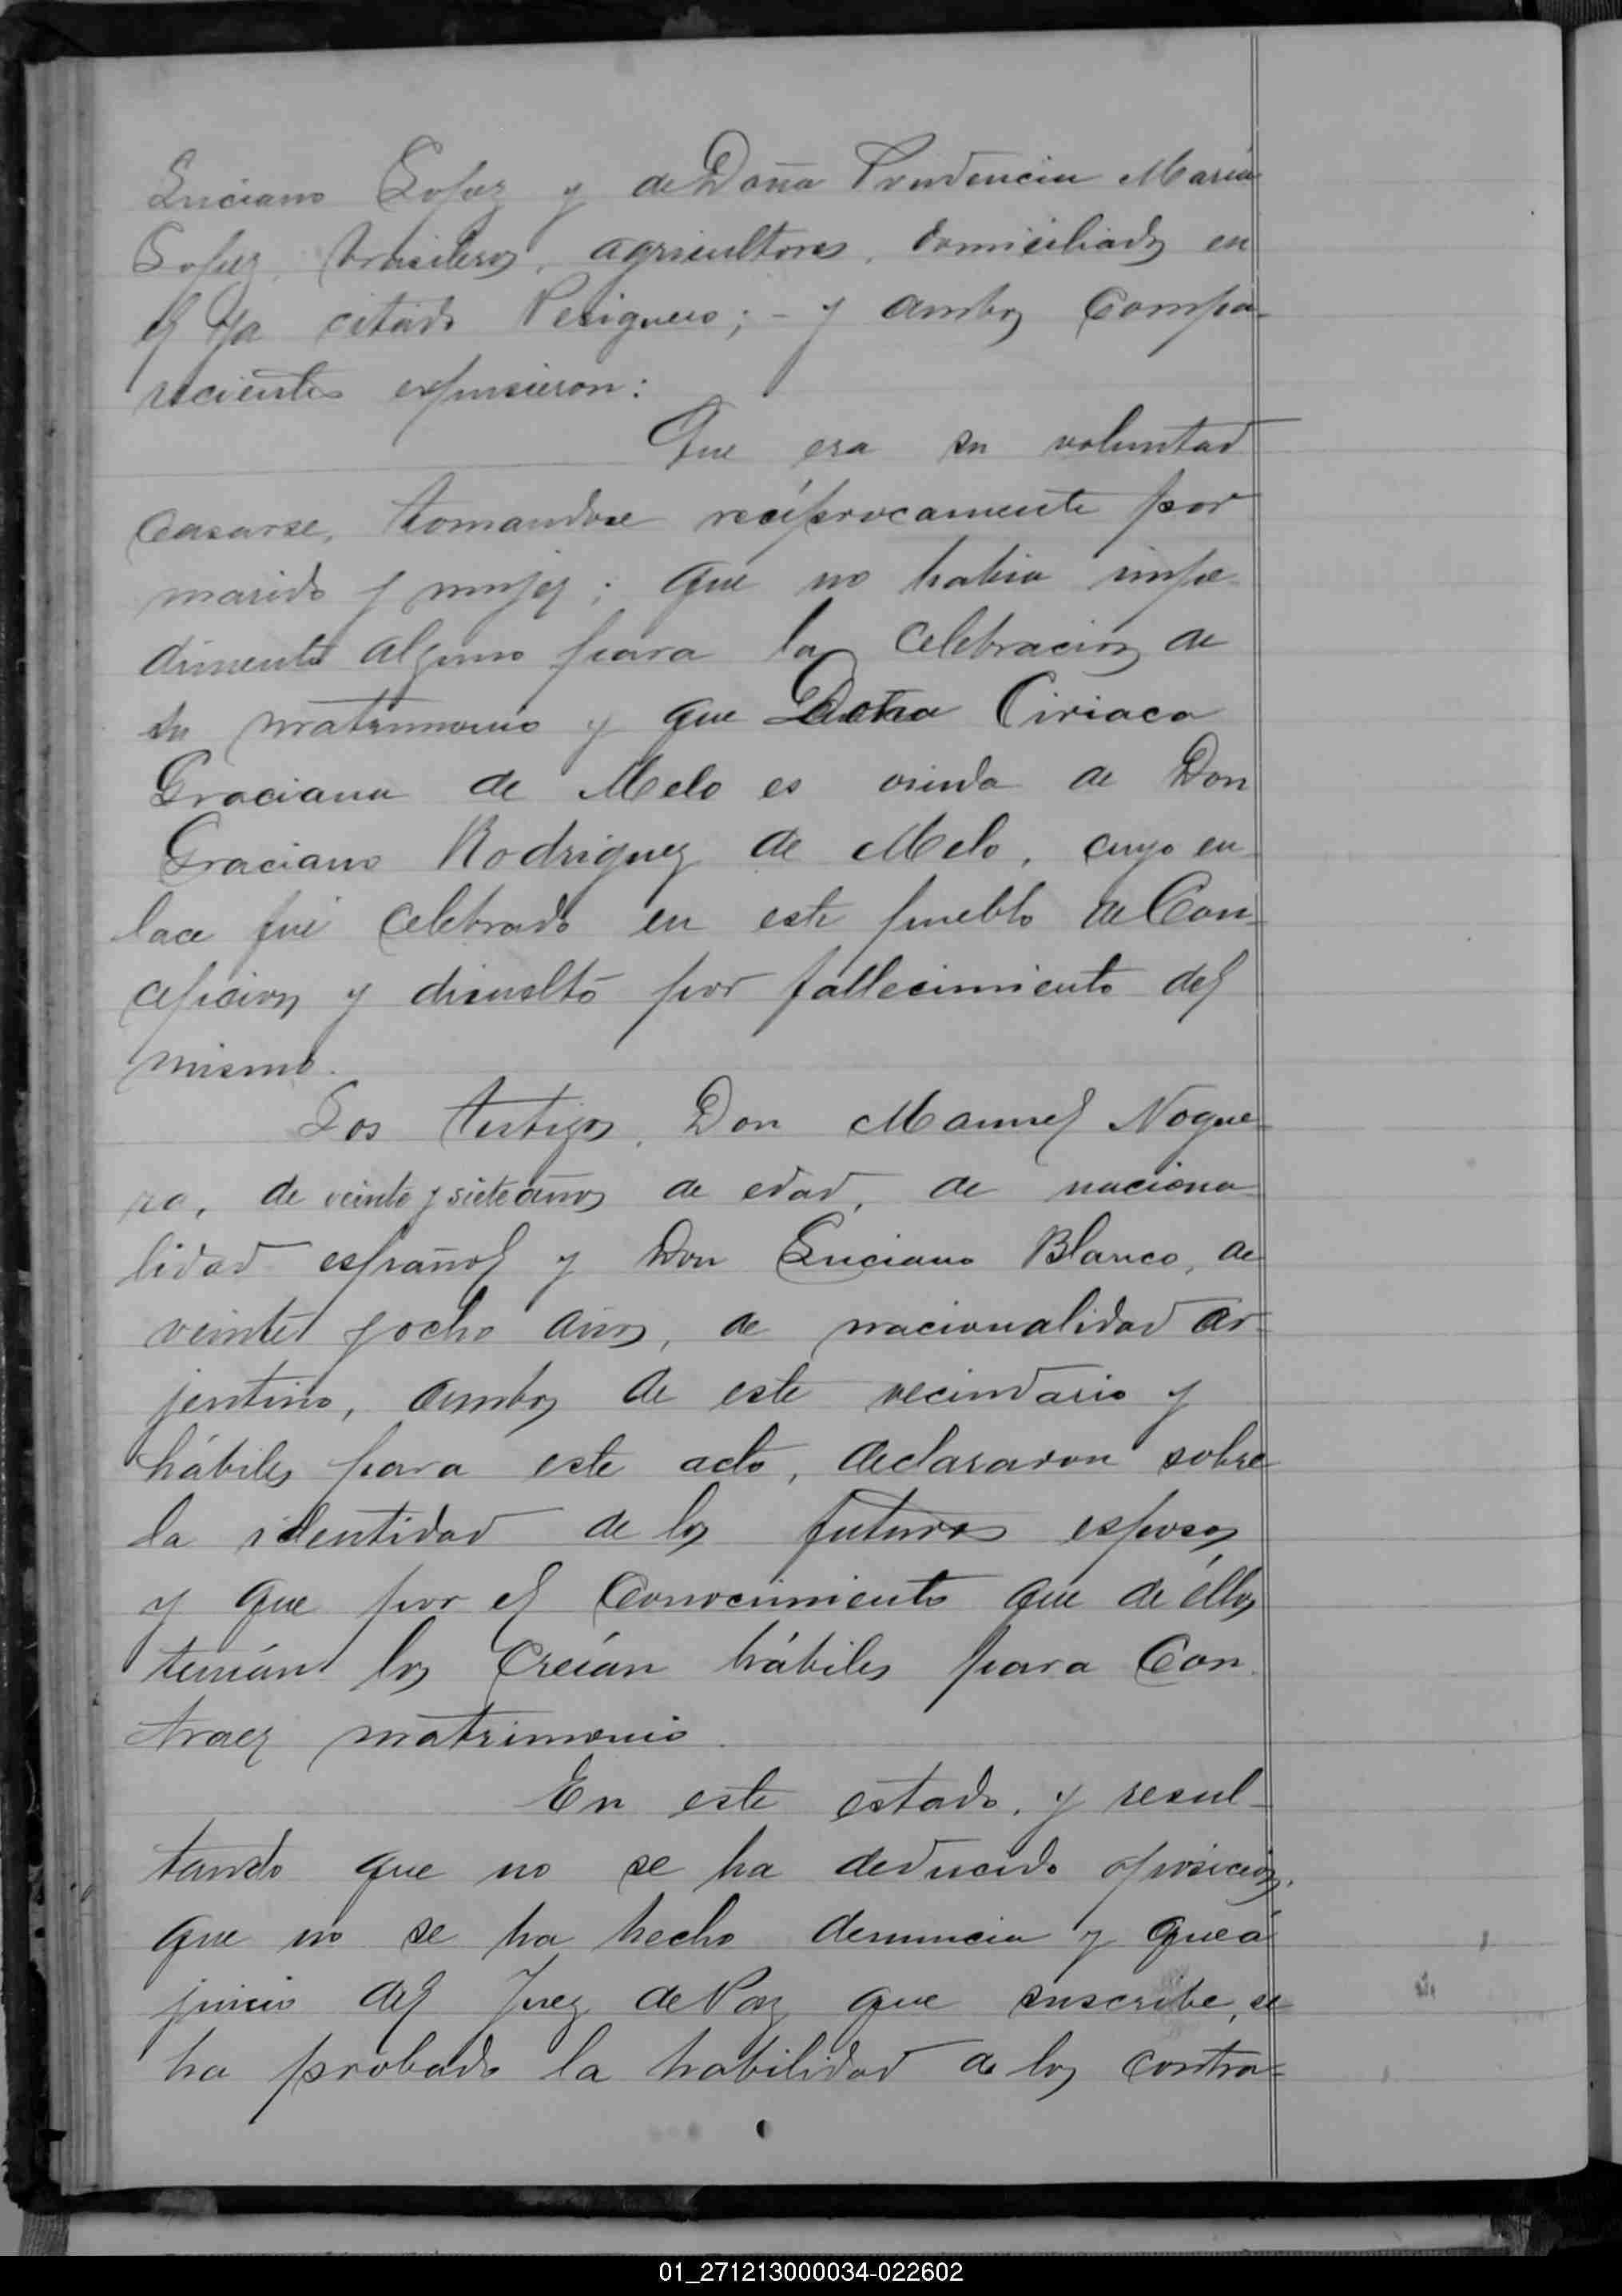 Luciano Lopez y de Doña Prudencia Maria
Lopez, brasileros, agricultores, domiciliados en
el ya citado Persiguero; - y ambos compa-
recientes expusieron:
Que era su voluntad
casarse, tomandose recíprocamente por
marido y mujer; que no habia impe-
dimento alguno para la celebracion de
su matrimonio y que Doña Ciriaca
Graciana de Melo es viuda de Don
Graciano Rodriguez de Melo, cuyo en-
lace fué celebrado en este pueblo de Con-
cepcion y disuelto por fallecimiento del
mismo.
Los testigos, Don Manuel Nogue-
ra, de veinte y siete años de edad, de naciona-
lidad español y Don Luciano Blanco, de
veinte y ocho años, de nacionalidad ar-
jentino, ambos de este vecindario y
hábiles para este acto, declararon sobre
la identidad de los futuros esposos
y que por el conocimiento que de éllos
tenían los creían hábiles para con-
traer matrimonio.
En este estado, y resul-
tando que no se ha deducido oposicion,
que no se ha hecho denuncia y que á
juicio del Juez de Paz que suscribe, se
ha probado la habilidad de los contra-
01_271213000034-022602